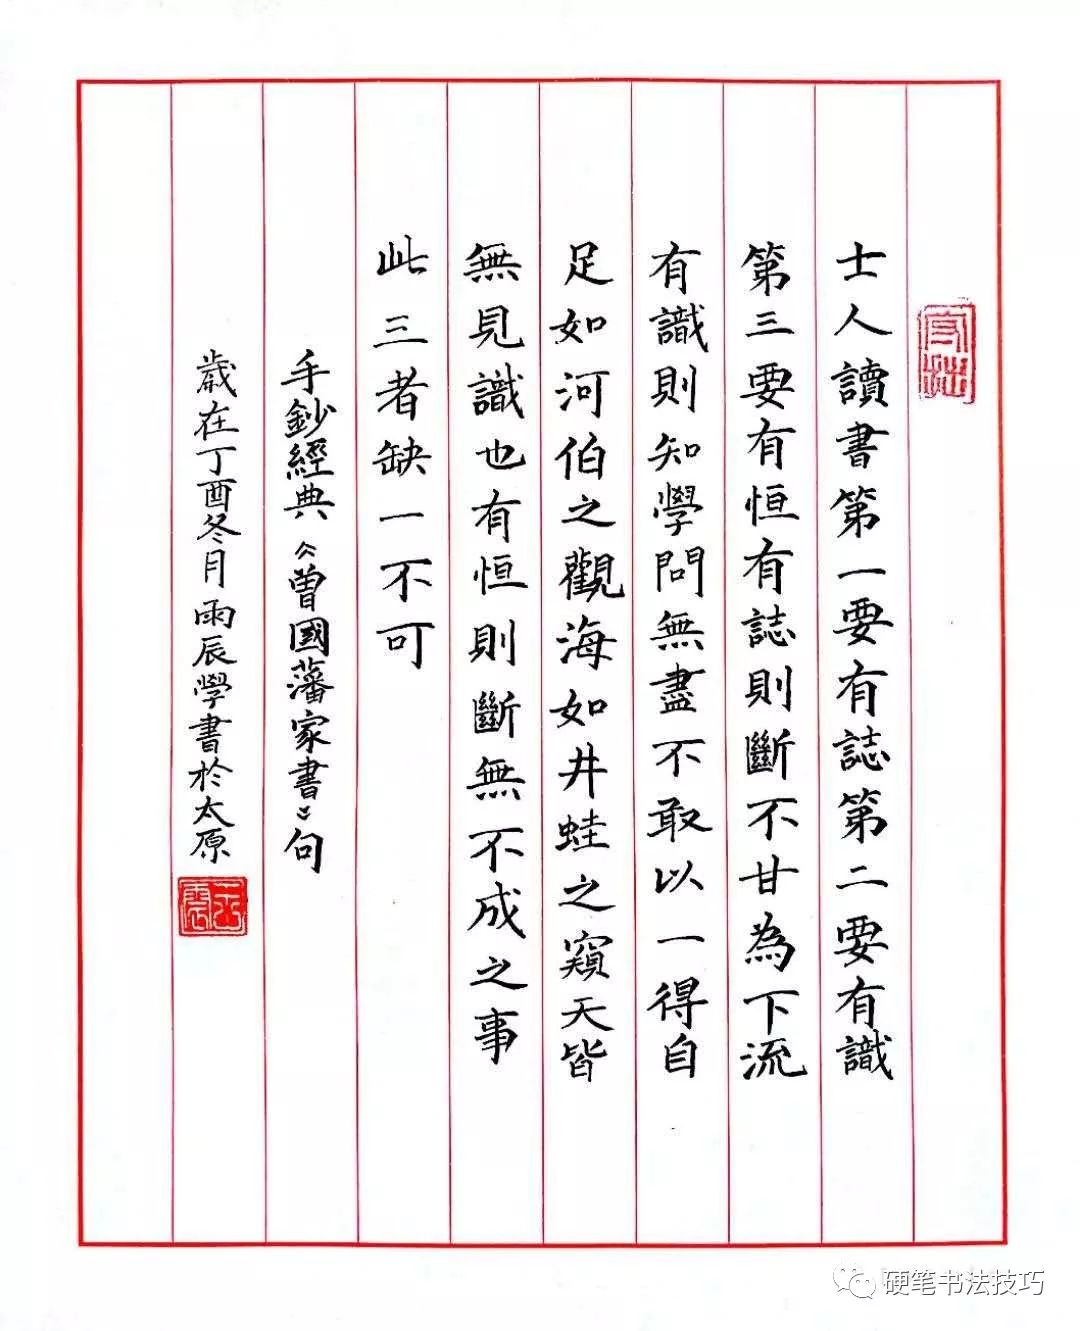 守拙
士人讀書第一要有誌第二要有識
第三要有恒有誌則斷不甘為下流
有識則知學問無盡不敢以一得自
足如河伯之觀海如井蛙之窺天皆
無見識也有恒則斷無不成之事
此三者缺一不可
手鈔經典《曾國藩家書》句
歲在丁酉冬月雨辰學書於太原
硬笔书法技巧